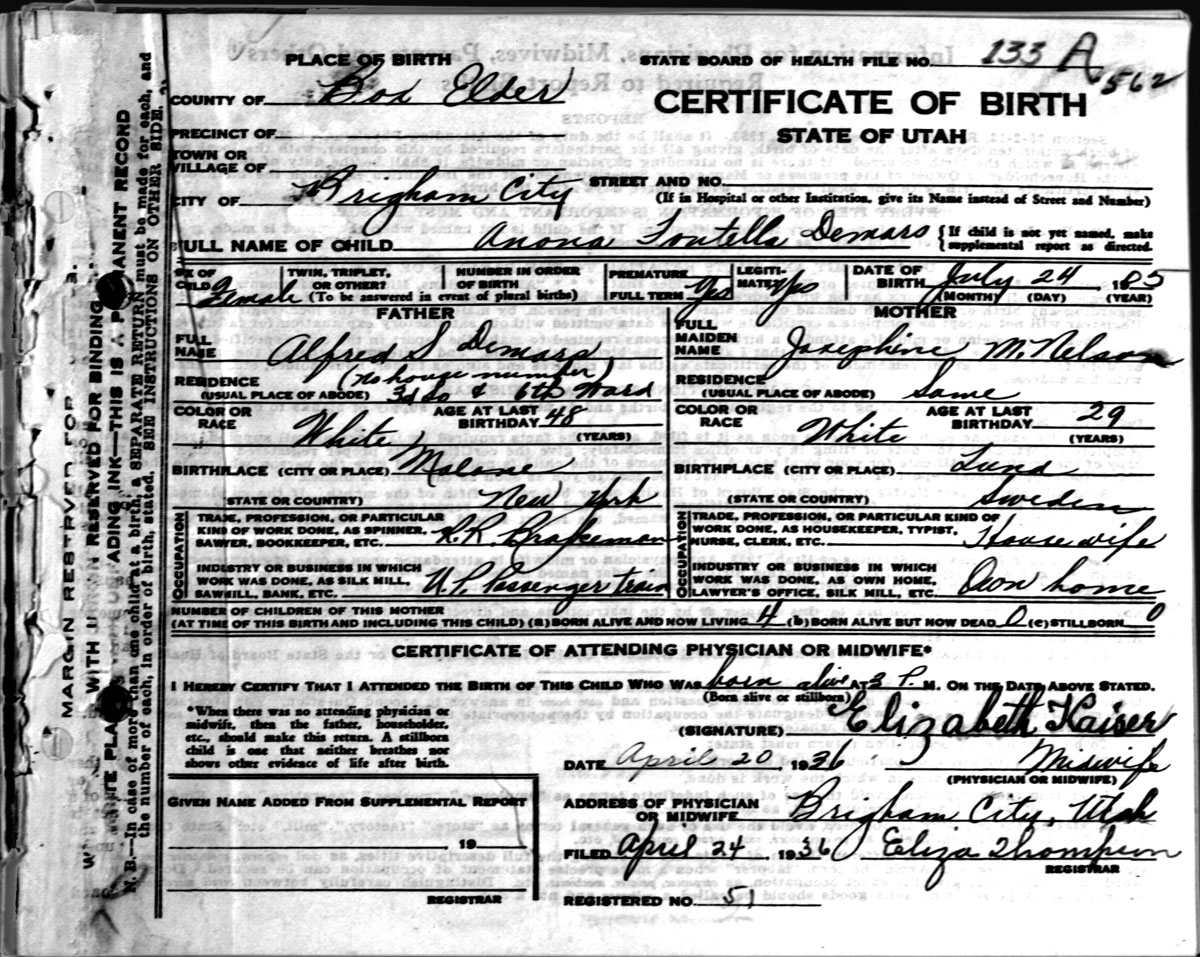 PLACE OF BIRTH
STATE BOARD OF HEALTH FILE NO. 133 A
562
COUNTY OF Box Elder
CERTIFICATE OF BIRTH
PRECINCT OF
STATE OF UTAH
TOWN OR
VILLAGE OF
STREET AND NO.
CITY OF Brigham City
(If in Hospital or other Institution, give its Name instead of Street and Number)
FULL NAME OF CHILD Anona Fontella Demars
{If child is not yet named, make
supplemental report as directed.
SEX OF
CHILD Female
TWIN, TRIPLET,
OR OTHER?
NUMBER IN ORDER
OF BIRTH
(To be answered in event of plural births)
PREMATURE
FULL TERM Yes
LEGITI-
MATE? Yes
DATE OF
BIRTH July 24, 1
(MONTH) (DAY) (YEAR)
FATHER
FULL
NAME Alfred S Demars
(no house number)
RESIDENCE
(USUAL PLACE OF ABODE) 3d So & 6th Ward
COLOR OR
RACE White
AGE AT LAST
BIRTHDAY 48
(YEARS)
BIRTHPLACE (CITY OR PLACE) Malone
(STATE OR COUNTRY) New York
OCCUPATION
TRADE, PROFESSION, OR PARTICULAR
KIND OF WORK DONE, AS SPINNER,
SAWYER, BOOKKEEPER, ETC. R.R. Brakeman
INDUSTRY OR BUSINESS IN WHICH
WORK WAS DONE, AS SILK MILL,
SAWMILL, BANK, ETC. U.P. Passenger train
MOTHER
FULL
MAIDEN
NAME Josephine M. Nelson
RESIDENCE
(USUAL PLACE OF ABODE) Same
COLOR OR
RACE White
AGE AT LAST
BIRTHDAY 29
(YEARS)
BIRTHPLACE (CITY OR PLACE) Lund
(STATE OR COUNTRY) Sweden
OCCUPATION
TRADE, PROFESSION, OR PARTICULAR KIND OF
WORK DONE, AS HOUSEKEEPER, TYPIST,
NURSE, CLERK, ETC. Housewife
INDUSTRY OR BUSINESS IN WHICH
WORK WAS DONE, AS OWN HOME,
LAWYER'S OFFICE, SILK MILL, ETC. Own home
NUMBER OF CHILDREN OF THIS MOTHER
(AT TIME OF THIS BIRTH AND INCLUDING THIS CHILD) (a) BORN ALIVE AND NOW LIVING 4 (b) BORN ALIVE BUT NOW DEAD 0 (c) STILLBORN 0
CERTIFICATE OF ATTENDING PHYSICIAN OR MIDWIFE*
I HEREBY CERTIFY THAT I ATTENDED THE BIRTH OF THIS CHILD WHO WAS born alive AT 3 P. M. ON THE DATE ABOVE STATED.
(Born alive or stillborn)
*When there was no attending physician or
midwife, then the father, householder,
etc., should make this return. A stillborn
child is one that neither breathes nor
shows other evidence of life after birth.
(SIGNATURE) Elizabeth Kaiser
DATE April 20, 1936 Midwife
(PHYSICIAN OR MIDWIFE)
GIVEN NAME ADDED FROM SUPPLEMENTAL REPORT
19
REGISTRAR
ADDRESS OF PHYSICIAN
OR MIDWIFE Brigham City, Utah
FILED April 24, 1936 Eliza Thompson
REGISTRAR
REGISTERED NO. 51
MARGIN RESERVED FOR
RESERVED FOR BINDING
UNFADING INK—THIS IS A PERMANENT RECORD
N. B.—In case of more than one child at a birth, a SEPARATE RETURN must be made for each, and
the number of each, in order of birth, stated. SEE INSTRUCTIONS ON OTHER SIDE.